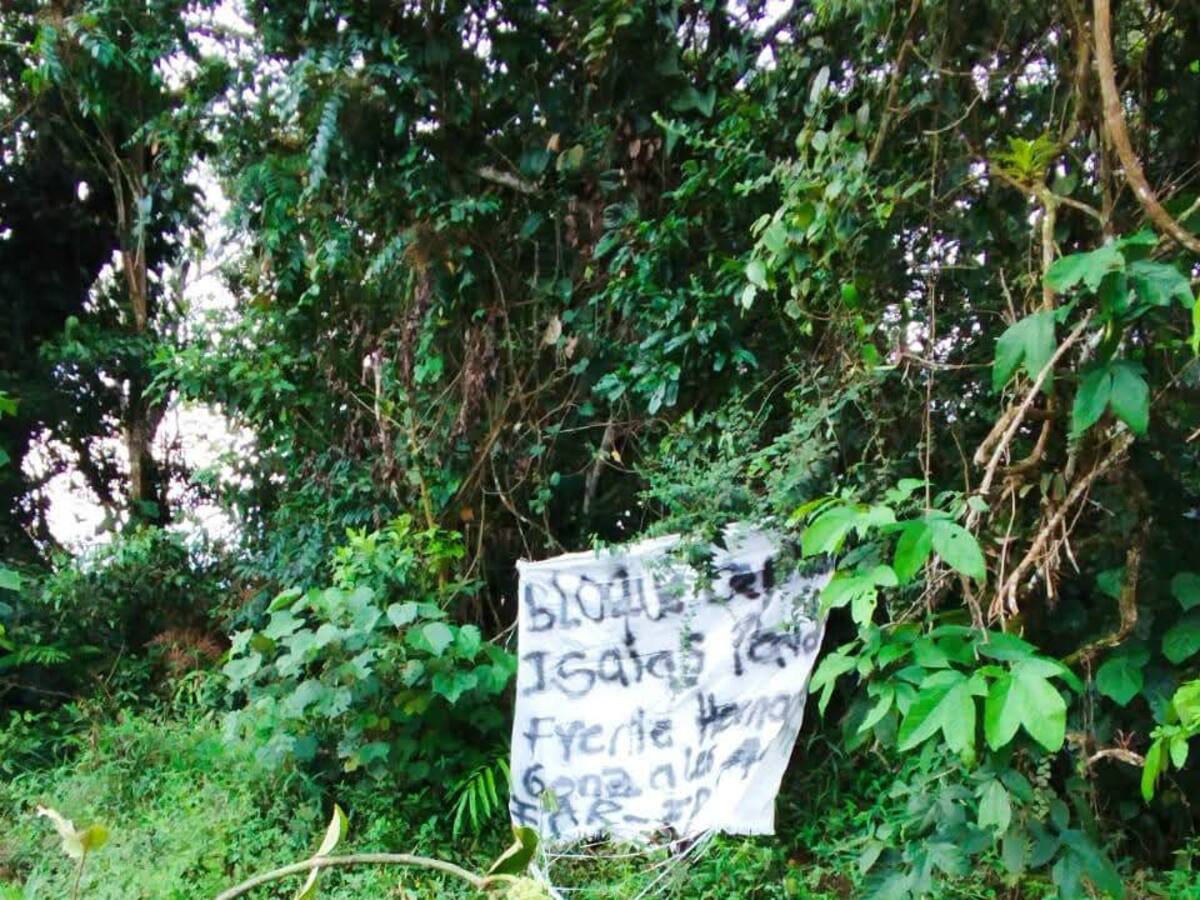 BLOQUE
Isaias Pardo
Frente Hernan
Gonza
FAR-EP